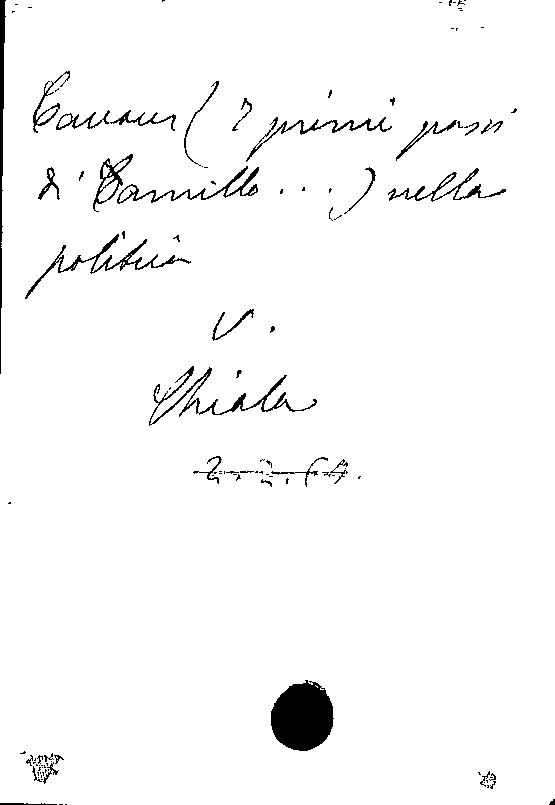 Cavour (I primi passi
di Camillo...) nella
politica
v.
Chiala
2.2.64.